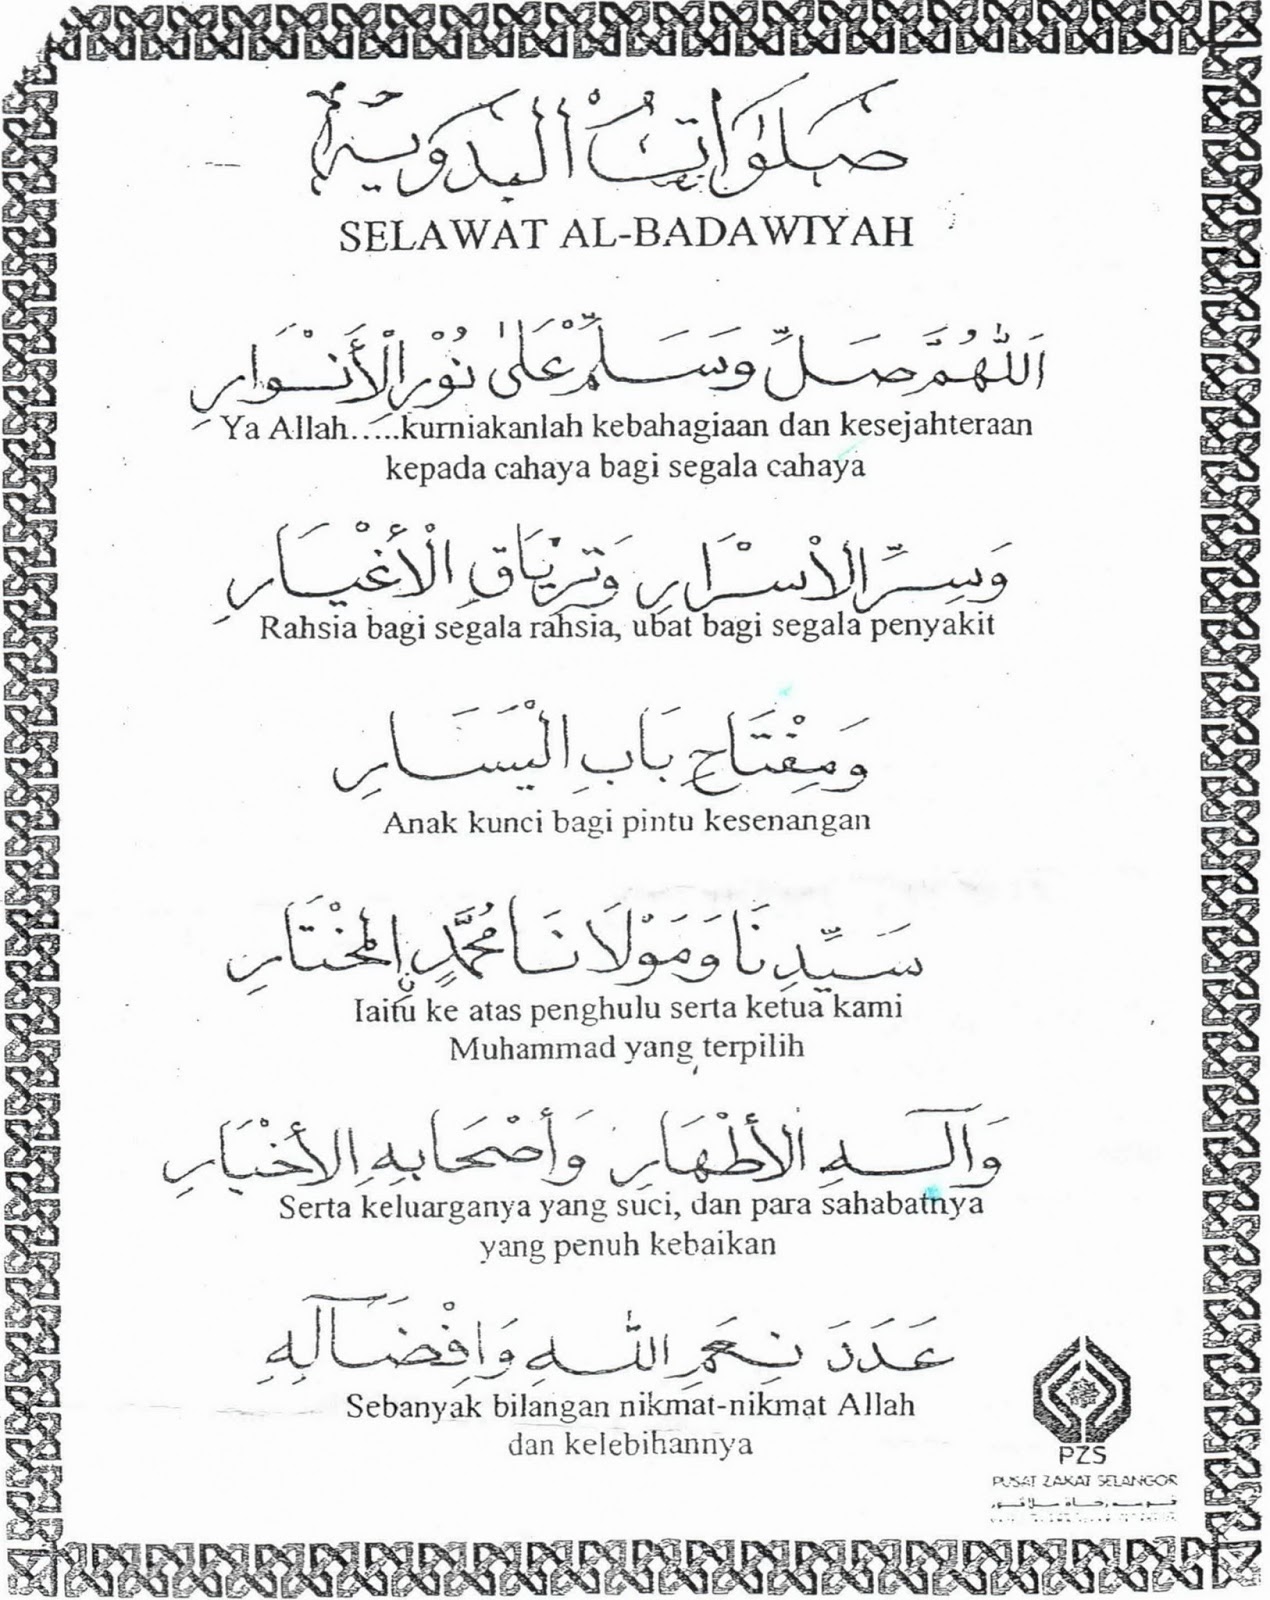 صَلَوَاتُ الْبَدَوِيَّة
SELAWAT AL-BADAWIYAH
اَللّٰهُمَّ صَلِّ وَسَلِّمْ عَلٰى نُوْرِ الْأَنْوَارِ
Ya Allah.....kurniakanlah kebahagiaan dan kesejahteraan
kepada cahaya bagi segala cahaya
وَسِرِّ الْأَسْرَارِ وَتِرْيَاقِ الْأَغْيَارِ
Rahsia bagi segala rahsia, ubat bagi segala penyakit
وَمِفْتَاحِ بَابِ الْيَسَارِ
Anak kunci bagi pintu kesenangan
سَيِّدِنَا وَمَوْلَانَا مُحَمَّدٍ الْمُخْتَارِ
Iaitu ke atas penghulu serta ketua kami
Muhammad yang terpilih
وَآلِهِ الْأَطْهَارِ وَأَصْحَابِهِ الْأَخْيَارِ
Serta keluarganya yang suci, dan para sahabatnya
yang penuh kebaikan
عَدَدَ نِعَمِ اللّٰهِ وَاِفْضَآلِهِ
Sebanyak bilangan nikmat-nikmat Allah
dan kelebihannya
PZS
PUSAT ZAKAT SELANGOR